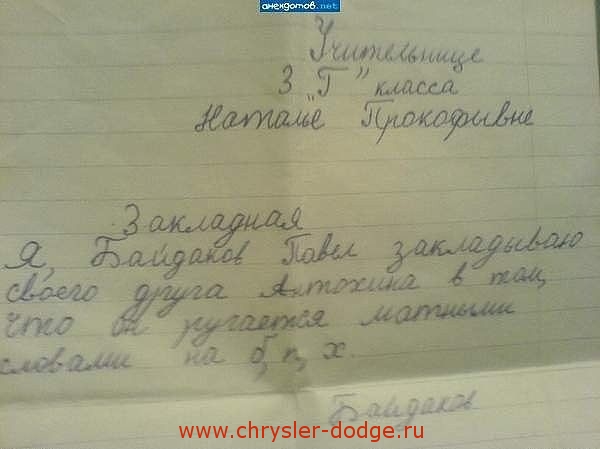 анекдотов.net
Учительнице
3 "Г" класса
Наталье Прокофивне
Закладная
Я, Байдаков Павел закладываю
своего друга Антохина в том,
что он ругается матными
словами на б, п, х.
Байдаков
www.chrysler-dodge.ru